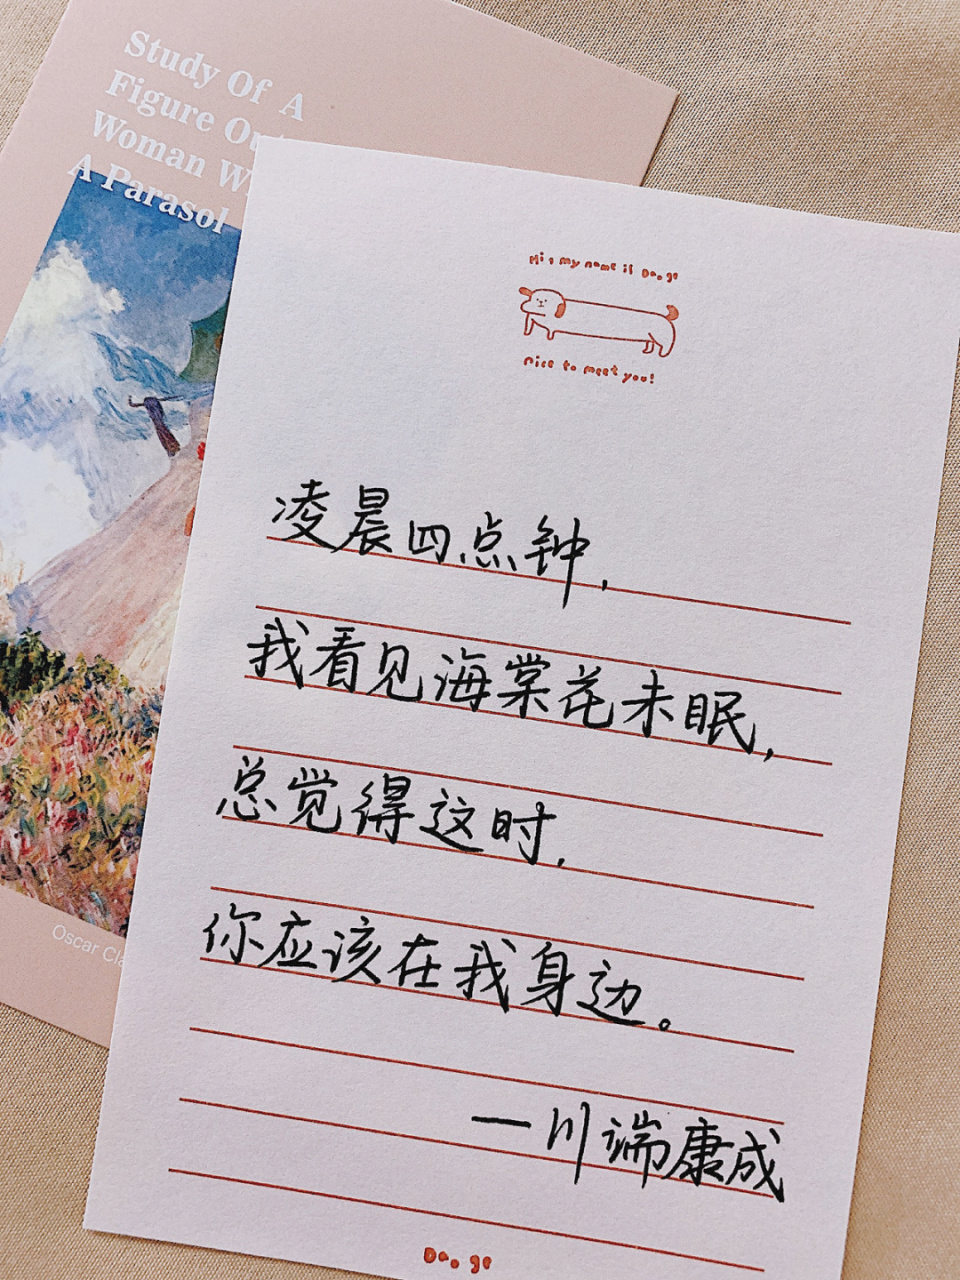 Study Of A
Figure Ou
Woman W
A Parasol
Oscar Cla
Hi, my name is Dao.ge
nice to meet you!
凌晨四点钟,
我看见海棠花未眠,
总觉得这时,
你应该在我身边。
一川端康成
Dao.ge